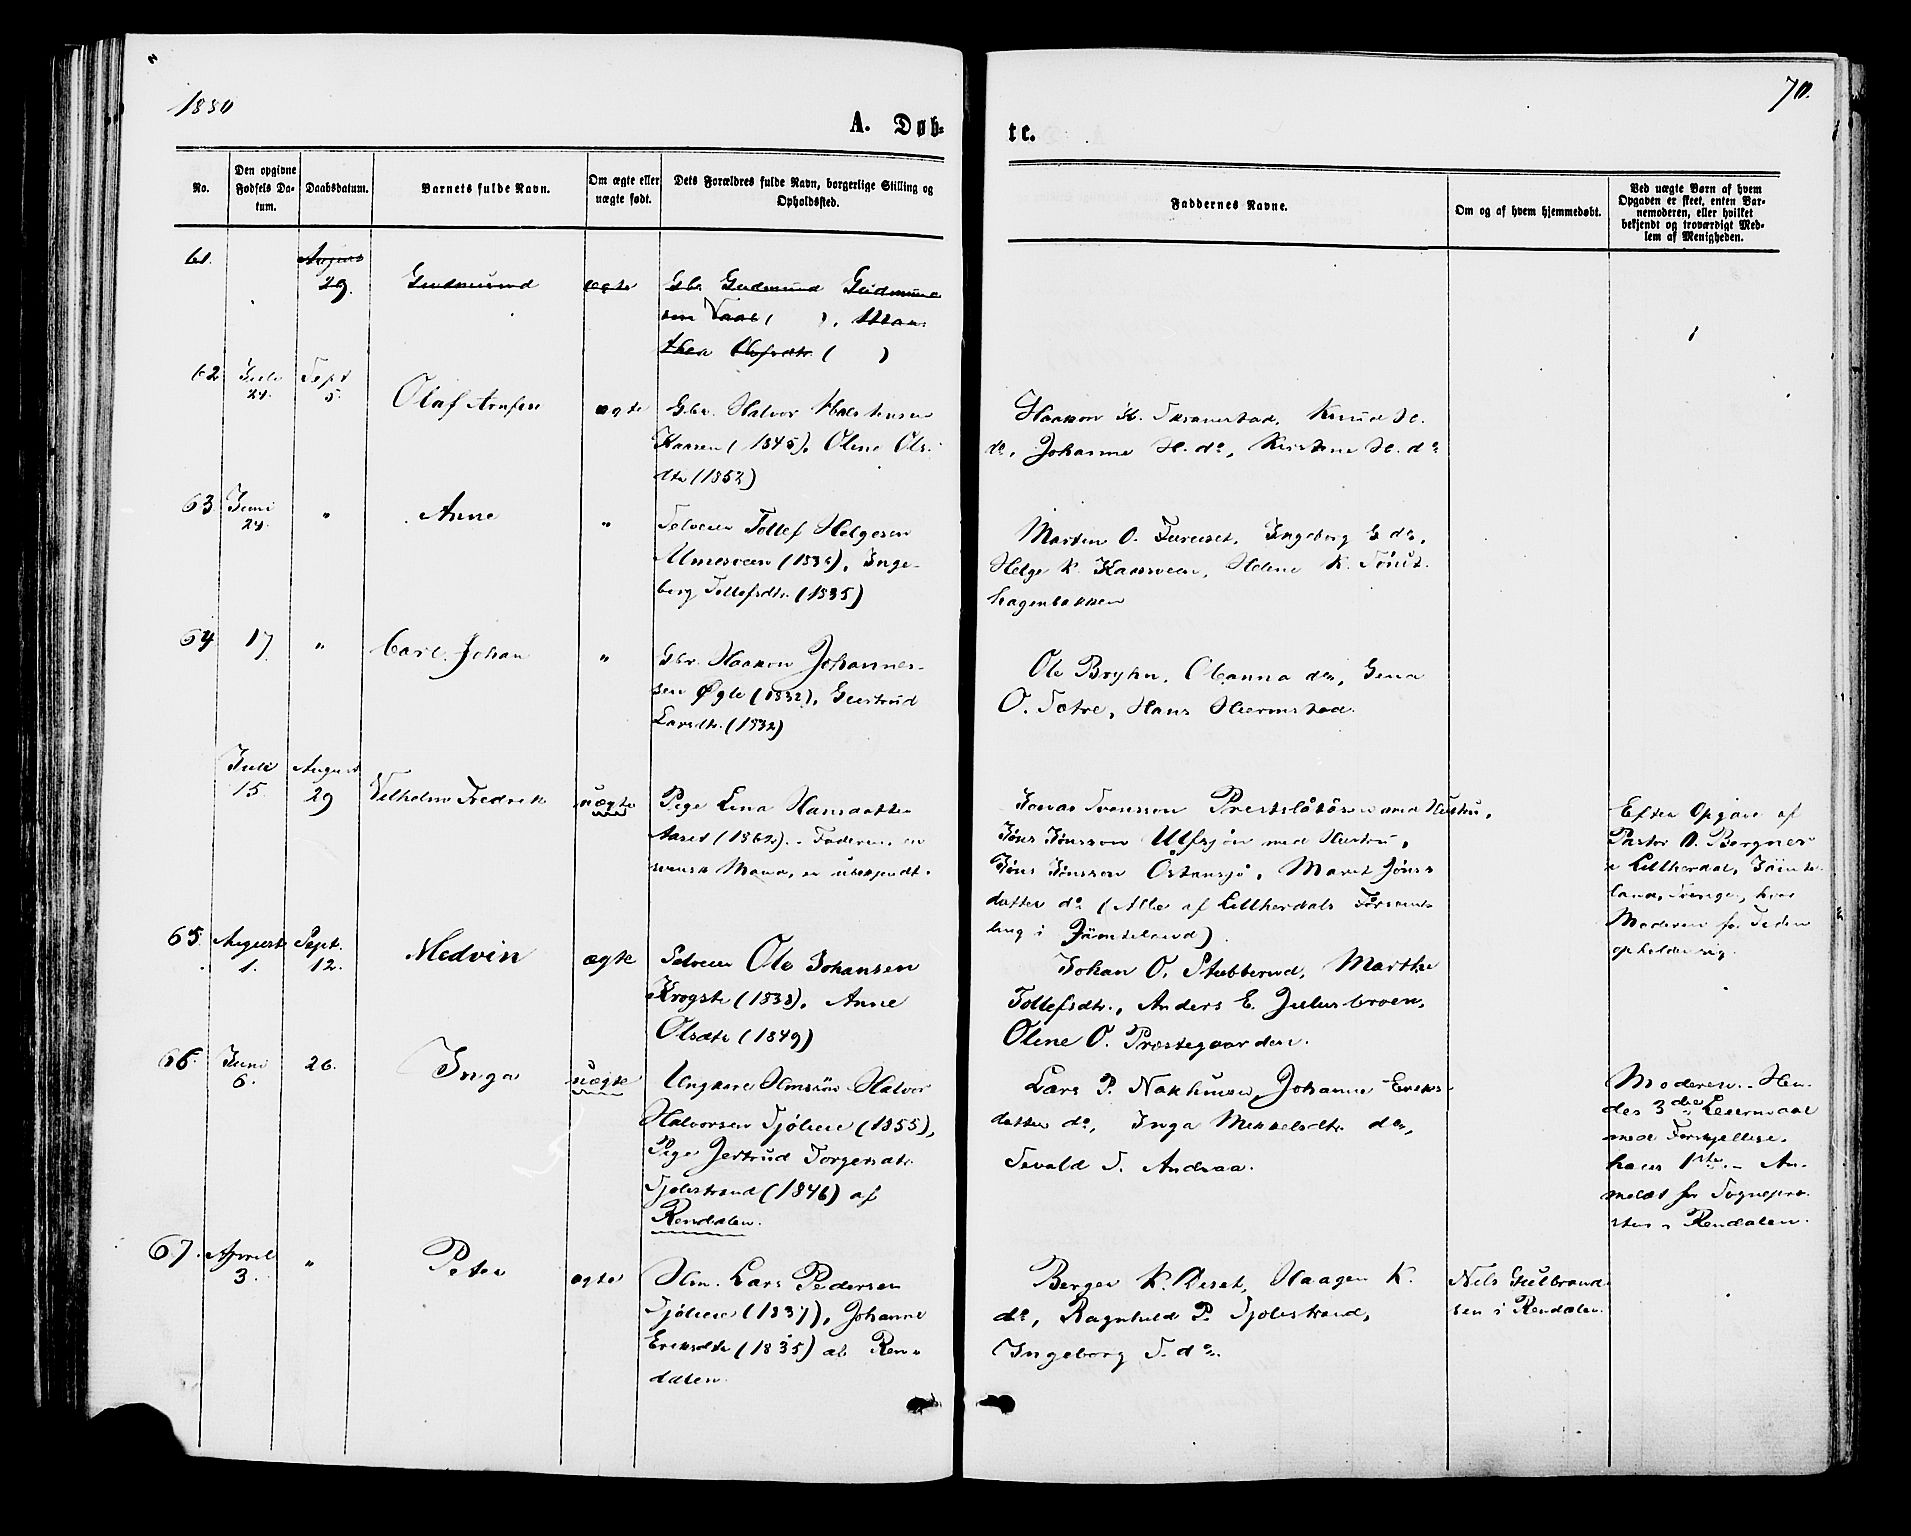 1880
70.
A. Døb-
te.
No.
Den opgivne
Fødsels Da-
tum.
Daabsdatum.
Barnets fulde Navn.
Om ægte eller
uægte født.
Dets Forældres fulde Navn, borgerlige Stilling og
Opholdssted.
Faddernes Navne.
Om og af hvem hjemmedøbt.
Ved uægte Børn af hvem
Opgaven er skeet, enten Bar-
nemoderen, eller hvilket
bekjendt og troværdigt Med-
lem af Menigheden.
61.
August
29.
Gudmund
ægte
Gbr. Gudmund Gudmund
sen ( ),
thea Olufsdtr. ( )
62
Juli
24.
Sept
5.
Olaf
ægte
Gbr. Halvor
Kaasen (1845), Oline Ols-
dtr (1852)
Haakon H. Knud H.
do, Johanne H. do, Kirstine H. do
63
Juni
24.
"
Anne
"
Selveier Tollef Helgesen
Inge-
borg Tollefsdtr. (1835)
Martin O. Ingeborg E do,
Helge K. Kaasveen, Helene K.
hagenbakken
64
17
"
Carl Johan
"
Gbr. Haakon Johannes-
sen Øgle (1832), Gjertrud
Larsdtr. (1832)
Ole Bryhn, Oleanna do, Gina
O. Sætre, Hans
Juli
15
August
29
Vilhelm Fredrik
uægte
Pige Lina Hansdatter
Aaset (1862). - Faderen, en
svensk Mand, er ubekjendt.
Jonas Svensson Prestslåtåsen med Hustru,
Jöns Jönsson Ulfsjön med Hustru,
Jöns Jönsson Östansjö, Maret Jöns
datter do (Alle af Lillherdals Försam-
ling i Jämtland).
Efter Opgave af
Pastor O. Bergner
i Lillherdal, Jämt-
land, Sverige, hvor
Moderen for Tiden
opholder sig.
65
August
1.
Sept.
12.
Medvin
ægte
Selveier Ole Johansen
Krogstr (1838), Anne
Olsdtr (1849)
Johan O. Stubberud, Marthe
Tollefsdtr., Anders E. Julusbroen,
Oline O. Præstegaarden.
66.
Juni
6.
26.
Inga
uægte
Ungkarl Hmsøn Halvor
Halvorsen Sjølien (1855),
Pige Jertrud Torgersdtr.
Sjølistrand (1846) af
Rendalen.
Lars P. Johanne Eriks-
datter do, Inga Mikkelsdtr do,
Sevald S. Andraa.
Moderen. - Hen-
des 3die Leiermaal
med Forskjellige,
hans 1ste. - An-
meldt for Sognepræ-
sten i Rendalen.
67.
April
3.
"
Peter
ægte
Hm. Lars Pedersen
Sjølien (1837), Johanne
Eriksdtr (1835) af Ren-
dalen.
Berger K. Haagen K.
do, Ragnhild P. Sjølistrand,
Ingeborg S. do.
Nils Gulbrand-
sen i Rendalen.